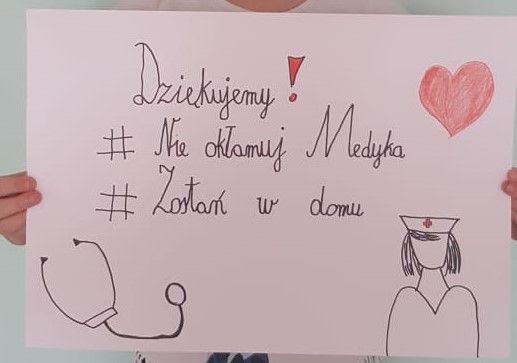 Dziękujemy!
# Nie okłamuj Medyka
# Zostań w domu